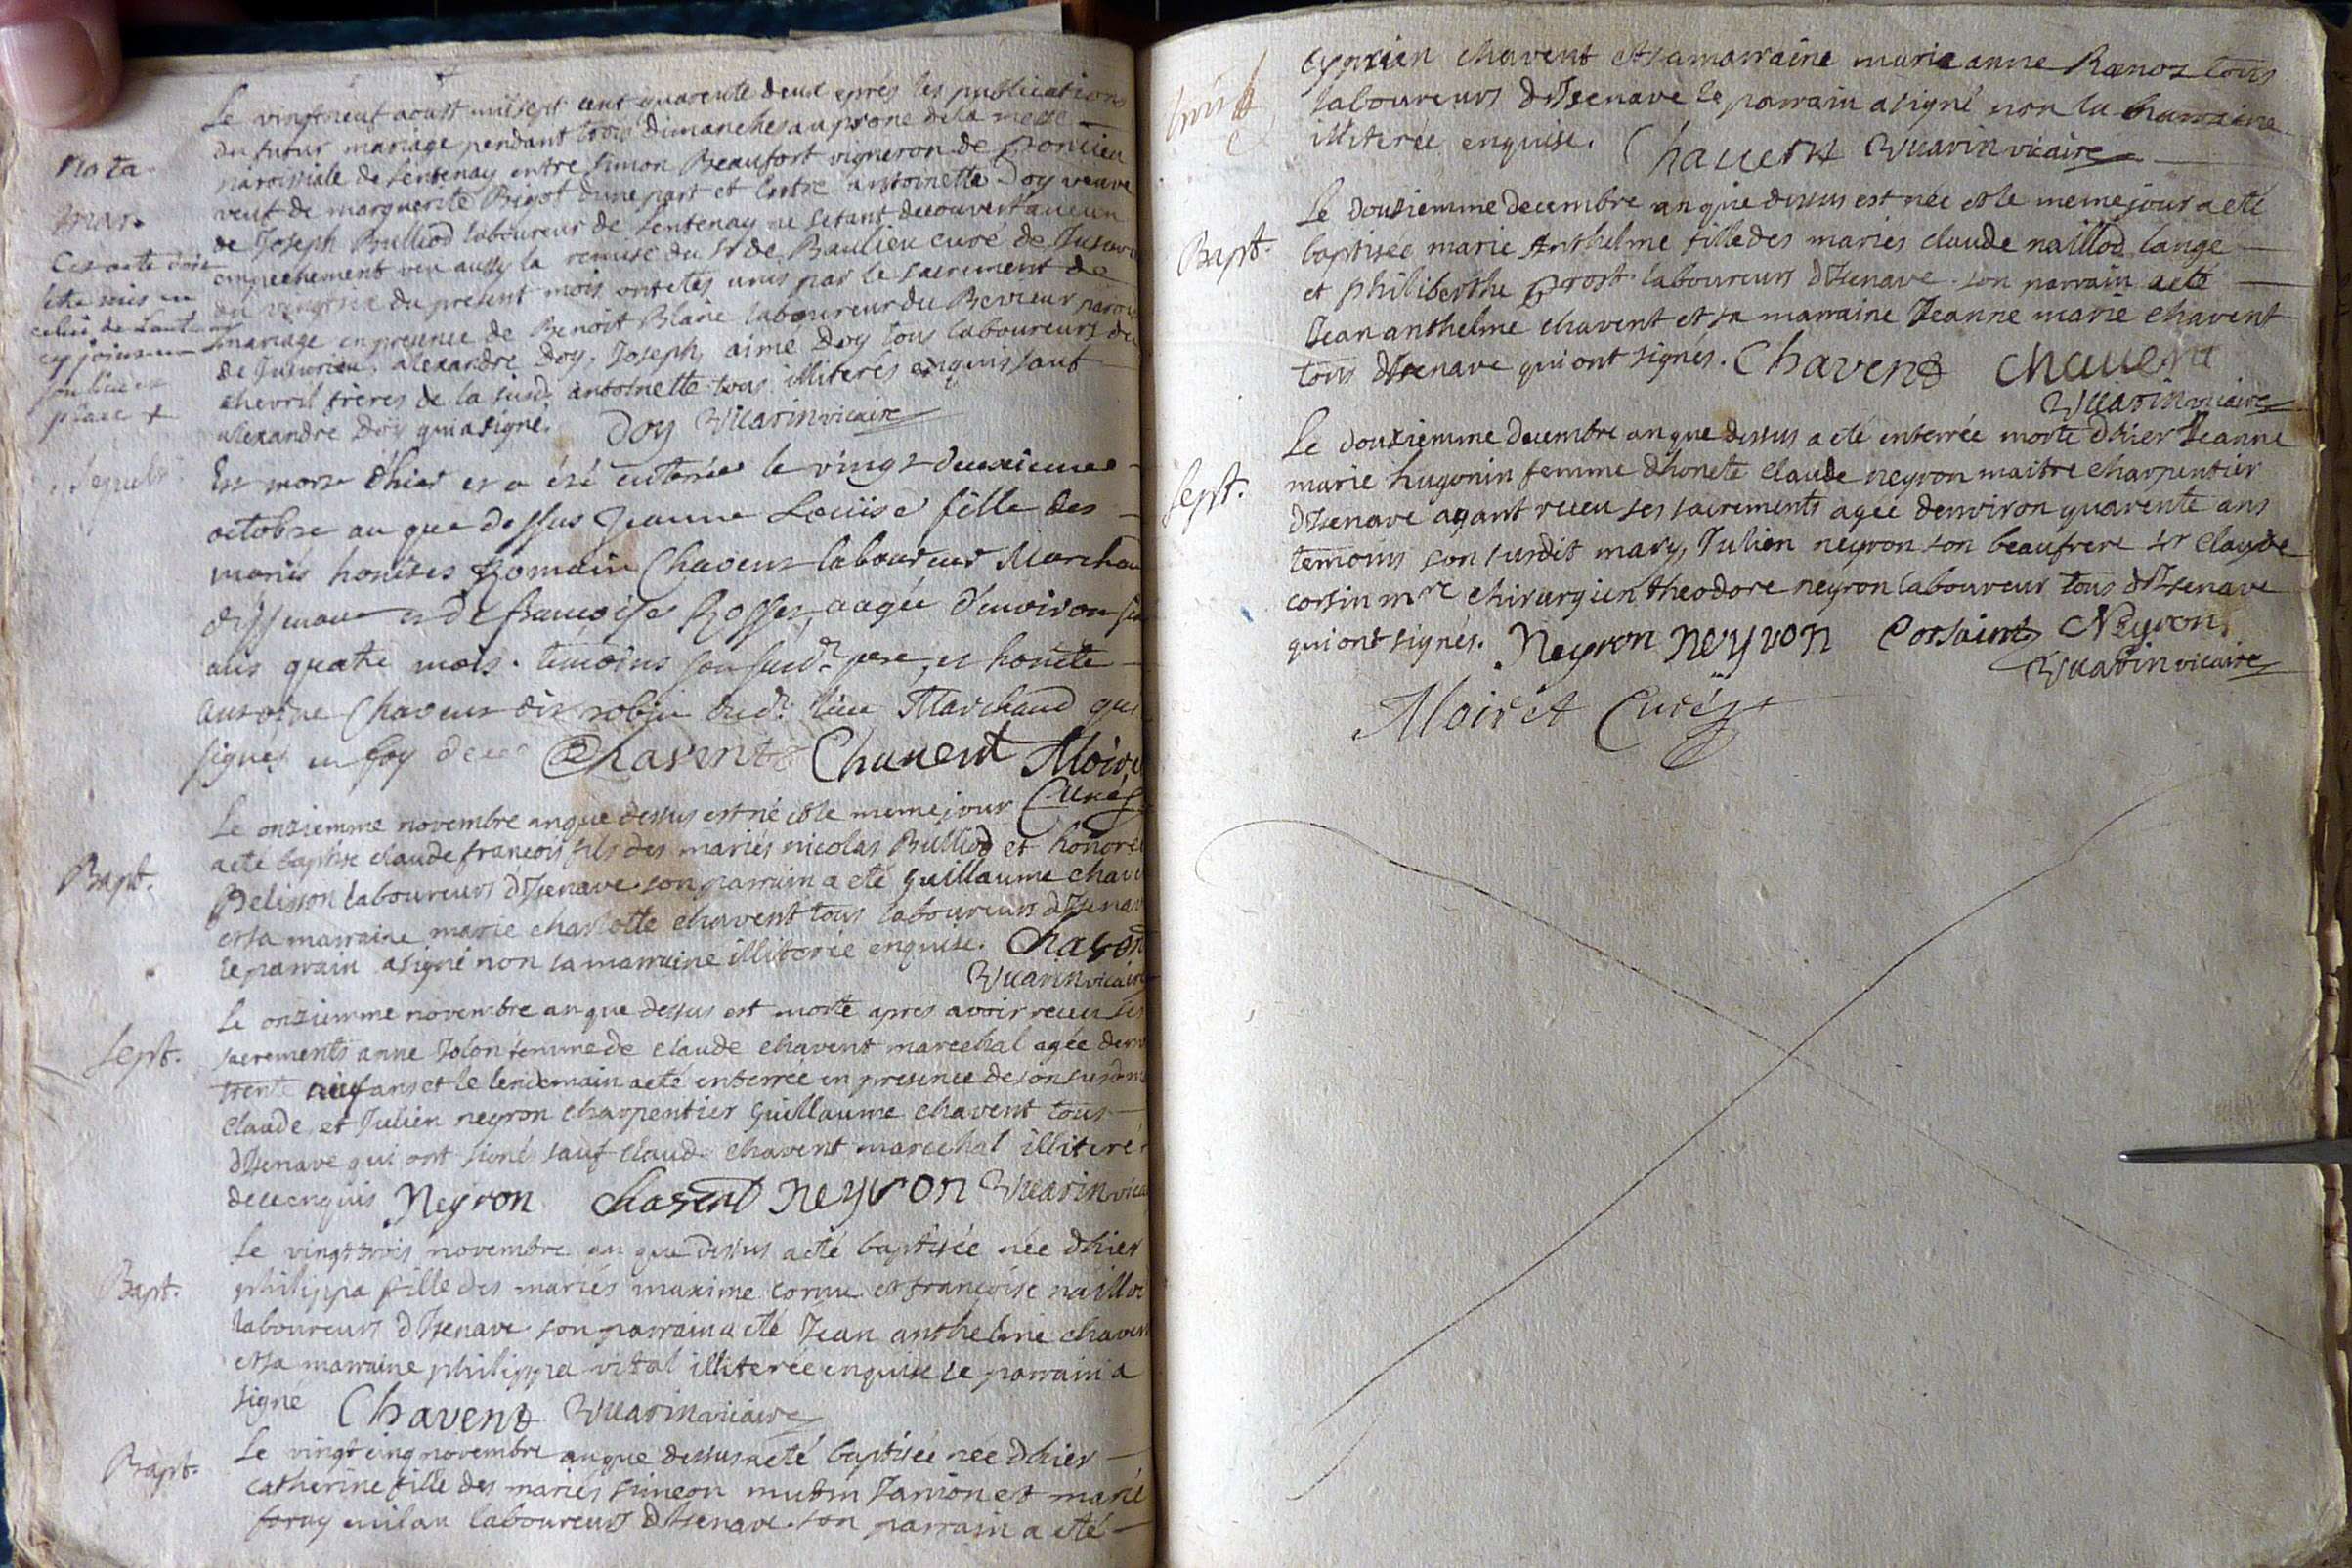 Le vingt neuf aoust mil sept cent quarente deux après les publications
nota.
du futur mariage pendant trois dimanches au prone de la messe
paroissiale de Lentenay entre Simon Beaufort vigneron de Poncieu
mar.
veuf de marguerite Rigot d'une part et entre antoinette Doy veuve
de Joseph Bulliod laboureur de Lentenay ne setant decouvert aucun
Cet acte doit
empechement veu aussy la remise du Sr de Baulieu curé de Jusurieu
letre mis en
du vingtsix du present mois ont etés unis par le sacrement de
celui de Lantenay
mariage en presence de Benoit Blanc laboureur du Brevieur paroisse
cy joint en
de Jusurieu, alexandre Doy, Joseph, aimé Doy tous laboureurs de
son lieu et
chevril freres de la susd. antoinette tous illiterés enquis sauf
place +
alexandre Doy qui a signé. Doy Vuarin vicaire
Sepult.
Est morte d'hier et a été enterée le vingt deuxieme
octobre an que dessus Jeanne Louïse fille des
mariés honêtes Romain Chavent laboureur Marchand
d'Issenave et de françoise Rosset, aagée d'environ six
ans quatre mois. témoins son susd.t pere, et honête
antoine Chavent dit robin dud.t lieu Marchand qui
signés en foy de ce Chavent Chavent Moiret
Curé
Le onziemme novembre an que dessus est né et le meme jour
a eté baptisé claude francois fils des mariés nicolas Bulliod et honoré
Bapt.
Belisson laboureurs d'Isenave son parrain a eté guillaume chavent
et sa marraine marie charlotte chavent tous laboureurs d'Isenave
le parrain a signé non sa marraine illiterée enquise. Chavent
Vuarin vicaire
Le onziemme novembre an que dessus est morte apres avoir receu ses
Sept.
sacrements anne Jolon femme de claude chavent marechal agée denv
trente neuf ans et le lendemain a eté enterrée en presence de son susd
claude et Julien neyron charpentier guillaume chavent tous
d'Isenave qui ont signés sauf claude chavent marechal illiteré
de ce enquis Neyron chavent neyron Vuarin vica
Le vingt trois novembre an que dessus a eté baptisée née d'hier
Bapt.
philippa fille des mariés maxime cornu et françoise naillod
laboureurs d'Isenave son parrain a eté Jean anthelme chavent
et sa marraine philippa vital illiterée enquise le parrain a
signé Chavent Vuarin vicaire
Bapt.
Le vingt cinq novembre an que dessus a eté baptisée née d'hier
catherine fille des mariés simeon mutin Janion et marie
foray milan laboureurs d'Isenave son parrain a eté
cyprien chavent et sa marraine marie anne Ranoz tous
laboureurs d'Isenave le parrain a signé non la marraine
illiterée enquise. Chavent Vuarin vicaire
Le douziemme decembre an que dessus est née et le meme jour a eté
Bapt.
baptisée marie Anthelme fille des mariés claude naillod lange
et philiberthe Prost laboureurs d'Isenave son parrain a eté
Jean anthelme chavent et sa marraine Jeanne marie chavent
tous d'Isenave qui ont signés. Chavent Chavent
Vuarin vicaire
Le douziemme decembre an que dessus a eté enterrée morte d'hier Jeanne
Sept.
marie hugonin femme d'honete claude neyron maitre charpentier
d'Isenave ayant receu ses sacrements agée denviron quarente ans
temoins son susdit mary, Julien neyron son beaufrere sr claude
corsin mre chirurgien theodore neyron laboureur tous d'Isenave
qui ont signés. Neyron neyron Corsaint Neyron
Vuarin vicaire
Moiret Curé